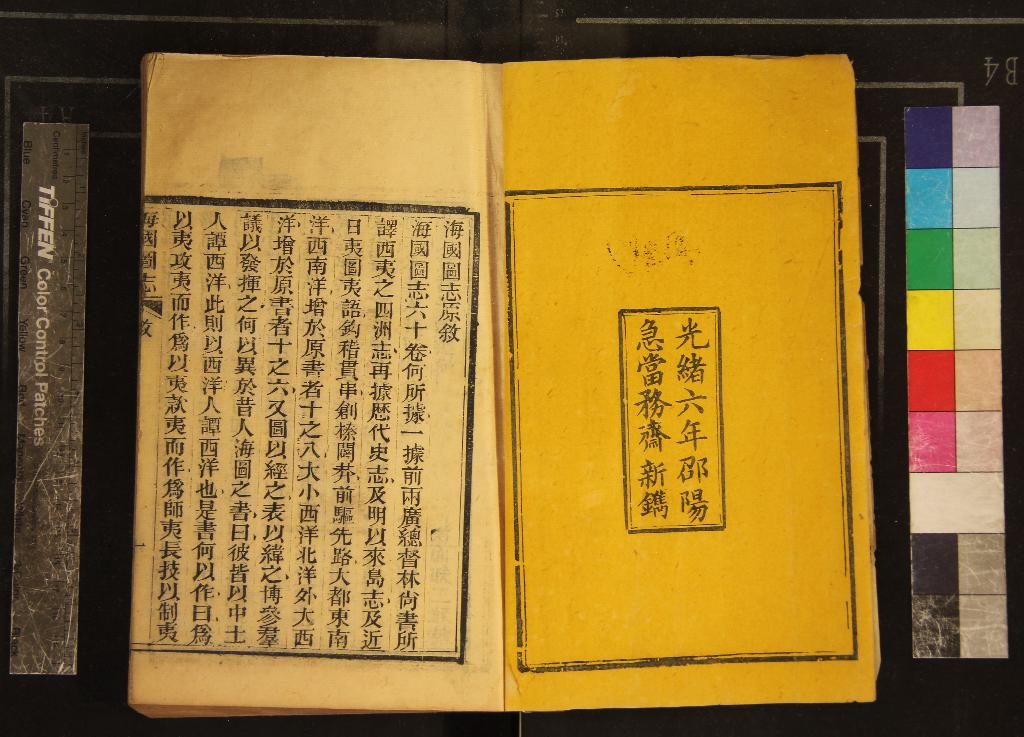 光緒六年邵陽
急當務齋新鐫
海國圖志原敘
海國圖志六十卷何所據一據前兩廣總督林尚書所
譯西夷之四洲志再據歷代史志及明以來島志及近
日夷圖夷語鈎稽貫串創榛闢莽前驅先路大都東南
洋西南洋增於原書者十之八大小西洋北洋外大西
洋增於原書者十之六又圖以經之表以緯之博參羣
議以發揮之何以異於昔人海圖之書曰彼皆以中土
人譚西洋此則以西洋人譚西洋也是書何以作曰爲
以夷攻夷而作爲以夷款夷而作爲師夷長技以制夷
海國圖志 敘
TIFFEN Color Control Patches
Centimetres
Blue
Cyan
Green
Yellow
Red
B4